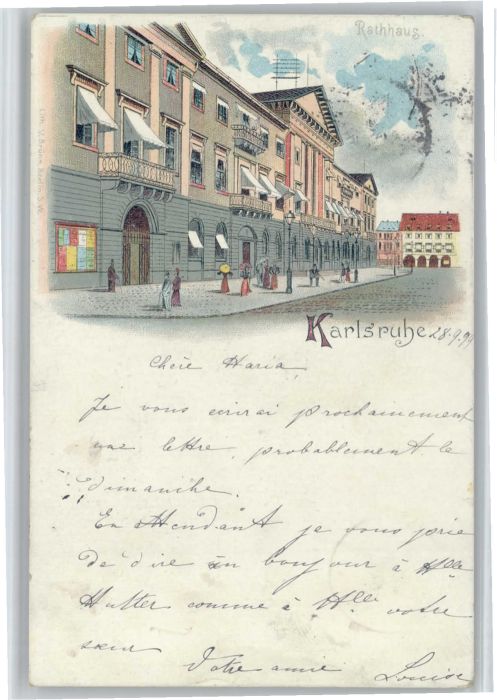 Rathhaus
Karlsruhe 28.9.99
Chère Maria
Je vous ecrirai prochainement
une lettre, probablement le
dimanche.
En Attendant je vous prie
de dire un bonjour à Mlle
Hutter comme à Mlle votre
sœur
Votre amie Louise